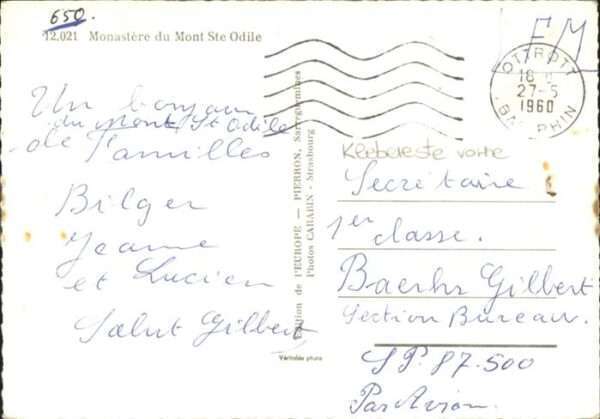 650.
12,021 Monastère du Mont Ste Odile
Un bonjour
du mont St Odile
de familles
Bilger
Jeanne
et Lucien
Salut Gilbert
tion de l'EUROPE — PIERRON, Sarreguemines
Photos CARABIN - Strasbourg
Véritable photo
FM
OTTROTT
18
27-5
1960
BAS-RHIN
Secrétaire
1er
classe.
Baehr Gilbert
Section Bureau.
SP. 87.500
Par Avion.